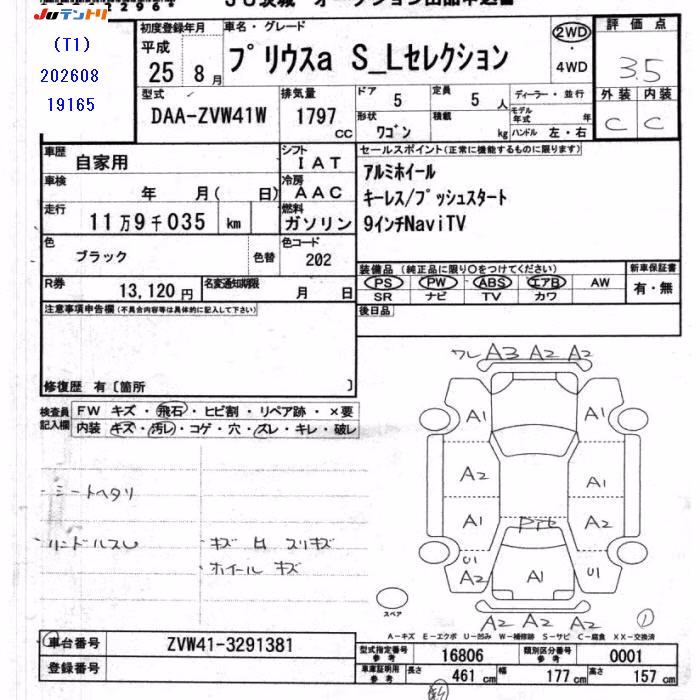 JUテントリ
(T1)
202608
19165
初度登録年月
平成
25 8 月
車名・グレード
プリウスα S_Lセレクション
2WD
4WD
評価点
3.5
外装 内装
C C
型式
DAA-ZVW41W
排気量
1797 cc
ドア 5
定員 5 人
形状 ワゴン
積載 kg
ディーラー・並行
モデル年式 年
ハンドル 左・右
車歴 自家用
シフト IAT
車検 年 月( 日)
冷房 AAC
走行 11万9千035 km
燃料 ガソリン
色 ブラック 色替
色コード 202
セールスポイント(正常に機能するものに限ります)
アルミホイール
キーレス/プッシュスタート
9インチNaviTV
R券 13,120円
名変通知期限 月 日
装備品 (純正品に限り○をつけてください)
PS PW ABS エアB AW
SR ナビ TV カワ
新車保証書
有・無
後日品
注意事項申告欄(不具合内容等は具体的に記入して下さい)
修復歴 有〔箇所 〕
検査員記入欄
FW キズ・飛石・ヒビ割・リペア跡・×要
内装 キズ・汚レ・コゲ・穴・スレ・キレ・破レ
・シートヘタリ
・ハンドルスレ
・キズ凹スリキズ
・ホイールキズ
ワレ A3 A2 A2
A1 A1
A2 A1
A1 A2
U1 A2 A1 U1
A2 A2 A2
スペア
A-キズ E-エクボ U-凹み W-補修跡 S-サビ C-腐食 XX-交換済
車台番号 ZVW41-3291381
登録番号
型式指定番号 参考 16806
類別区分番号 参考 0001
車庫証明用 参考 長さ 461 cm 幅 177 cm 高さ 157 cm